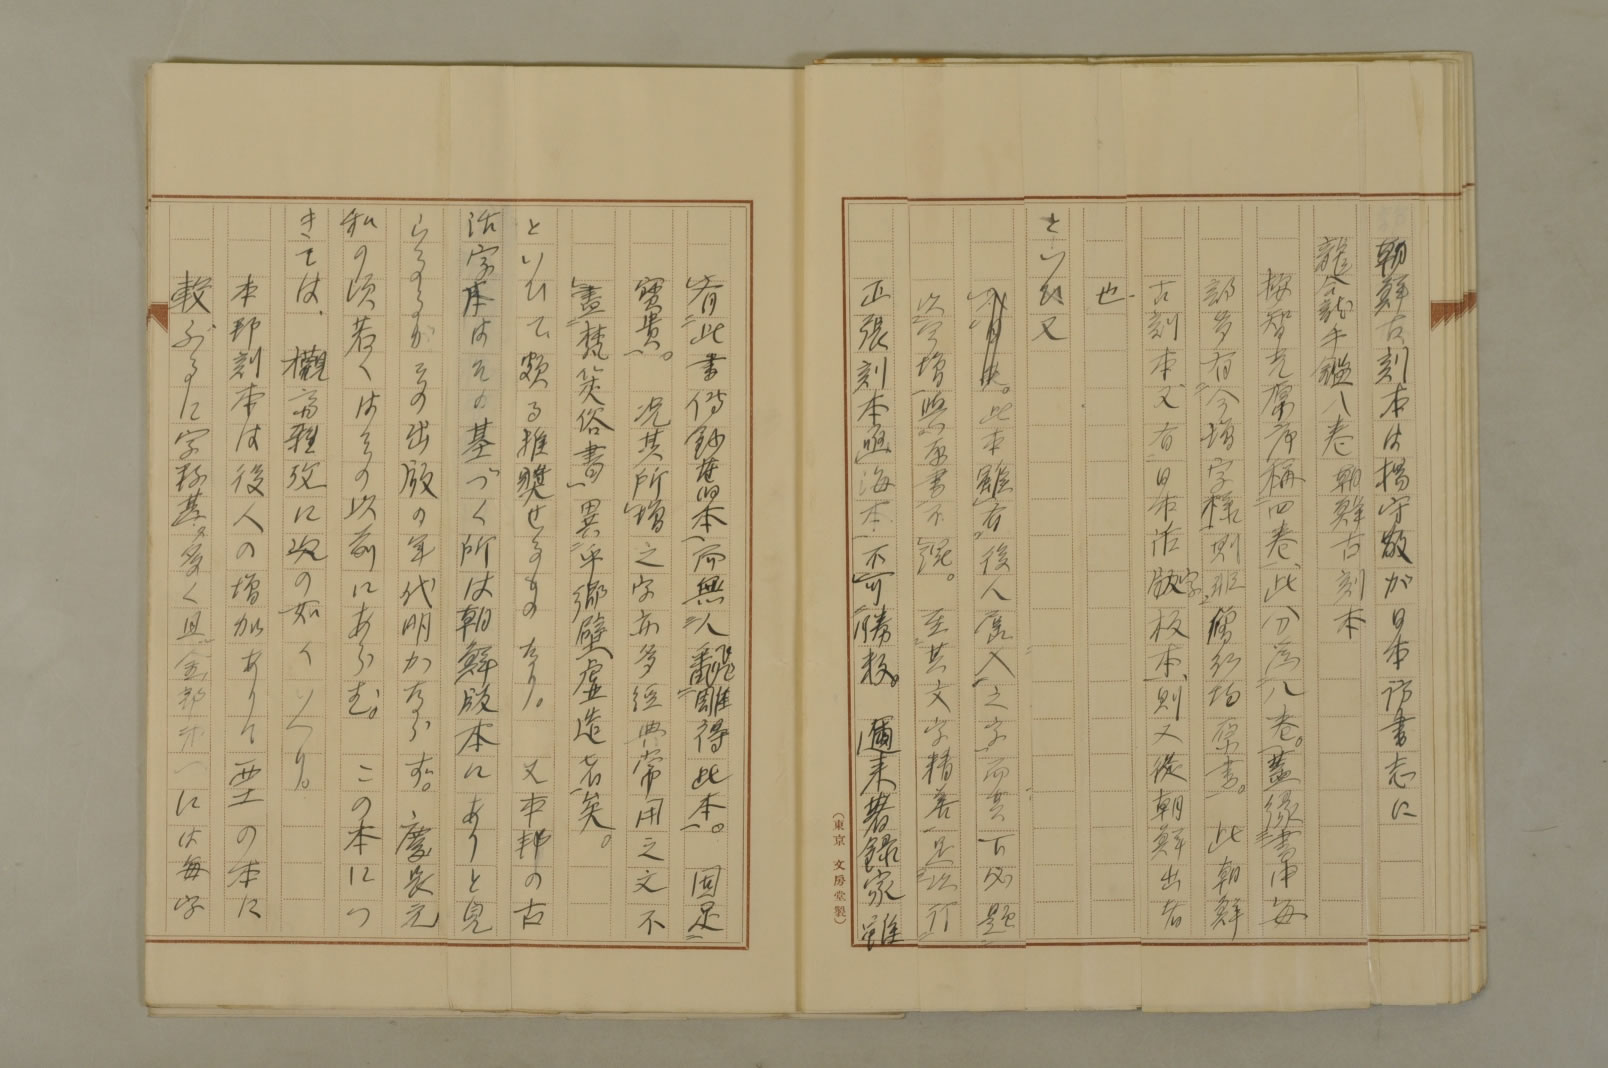 朝鮮古刻本は楊守敬が日本訪書志に
龍龕手鑑八巻 朝鮮古刻本
按智光原序稱四卷、此分爲八卷。蓋緣書中每
部多有今增字樣、則 原書。此朝鮮
古刻本又有日本活字板本、則又從朝鮮出者
也
といひ又
此本雖有後人羼入之字、而其下必題
以今增、與原書不混。至其文字精善、足以訂
正張刻本、函海本、不可勝数。邇来著録家雖
有此書傳鈔舊本、而無人翻雕得此本。固足
寶貴。况其所增之字亦多經典常用之文不
盡梵筴俗書、異乎鄉壁虚造者矣。
といひて頗る推奬せるものなり。又本邦の古
活字本はその基づく所は朝鮮版本にありと見
らるるがその出版の年代明かならず。慶長元
和の頃若くはその以前にあらむ。この本につ
きては、欟斎雜攷に次の如くいへり。
本邦刻本は後人の増加ありて の本に
較ぶるに字数甚多く且金部 一には毎字
(東京 文房堂製)